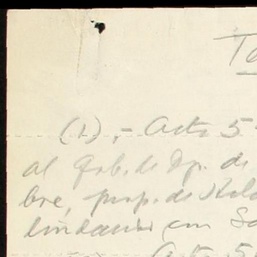 Ta
(1).- Acta 5
al Gob. de Dp. de
bre prop. de
lindando con Sa
Acta 5